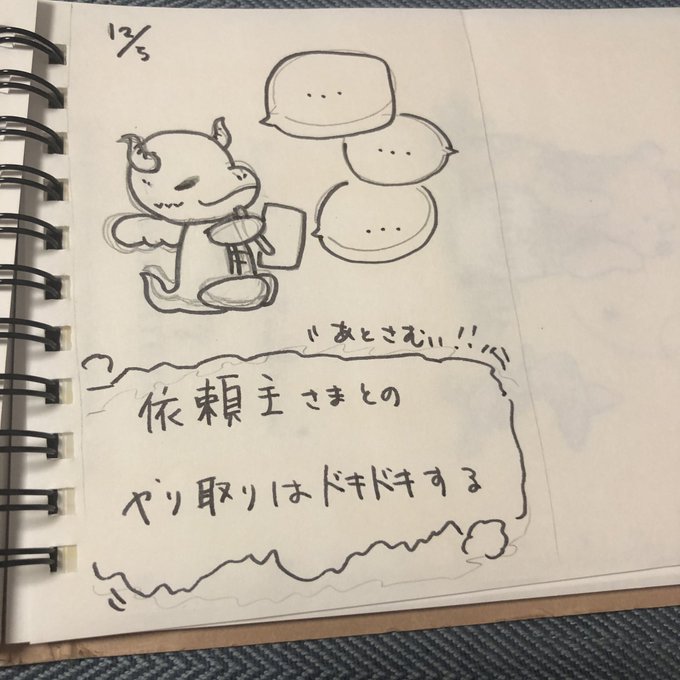 12/5
...
...
...
あとさむい!!
依頼主さまとの
やり取りはドキドキする